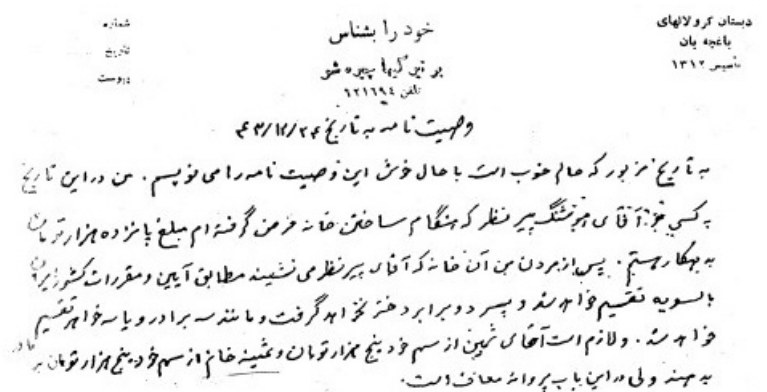 دبستان کرولالهای
باغچه بان
تأسیس ۱۳۱۲
خود را بشناس
بر تیرگیها چیره شو
تلفن ۱۲۱۱۹۴
شماره
تاریخ
پیوست
وصیت نامه به تاریخ ۴۳/۱۲/۲۴
به تاریخ مزبور که حالم خوب است با حال خوش این وصیت نامه را می نویسم . من در این تاریخ
به کسی جز آقای هوشنگ پیرنظر که هنگام ساختن خانه قرض گرفته ام مبلغ پانزده هزار تومان
بدهکار نیستم . پس از مردن من آن خانه که آقای پیرنظر می نشیند مطابق آیین و مقررات کشور
بالسویه تقسیم خواهد شد و پسر دو برابر دختر نخواهد گرفت و مانند سه برادر و یا سه خواهر تقسیم
خواهد شد . و لازم است آقای ثمین از سهم خود پنج هزار تومان و ثمینه خانم از سهم خود پنج هزار تومان
بدهند ولی در این باب پروانه معاف است .